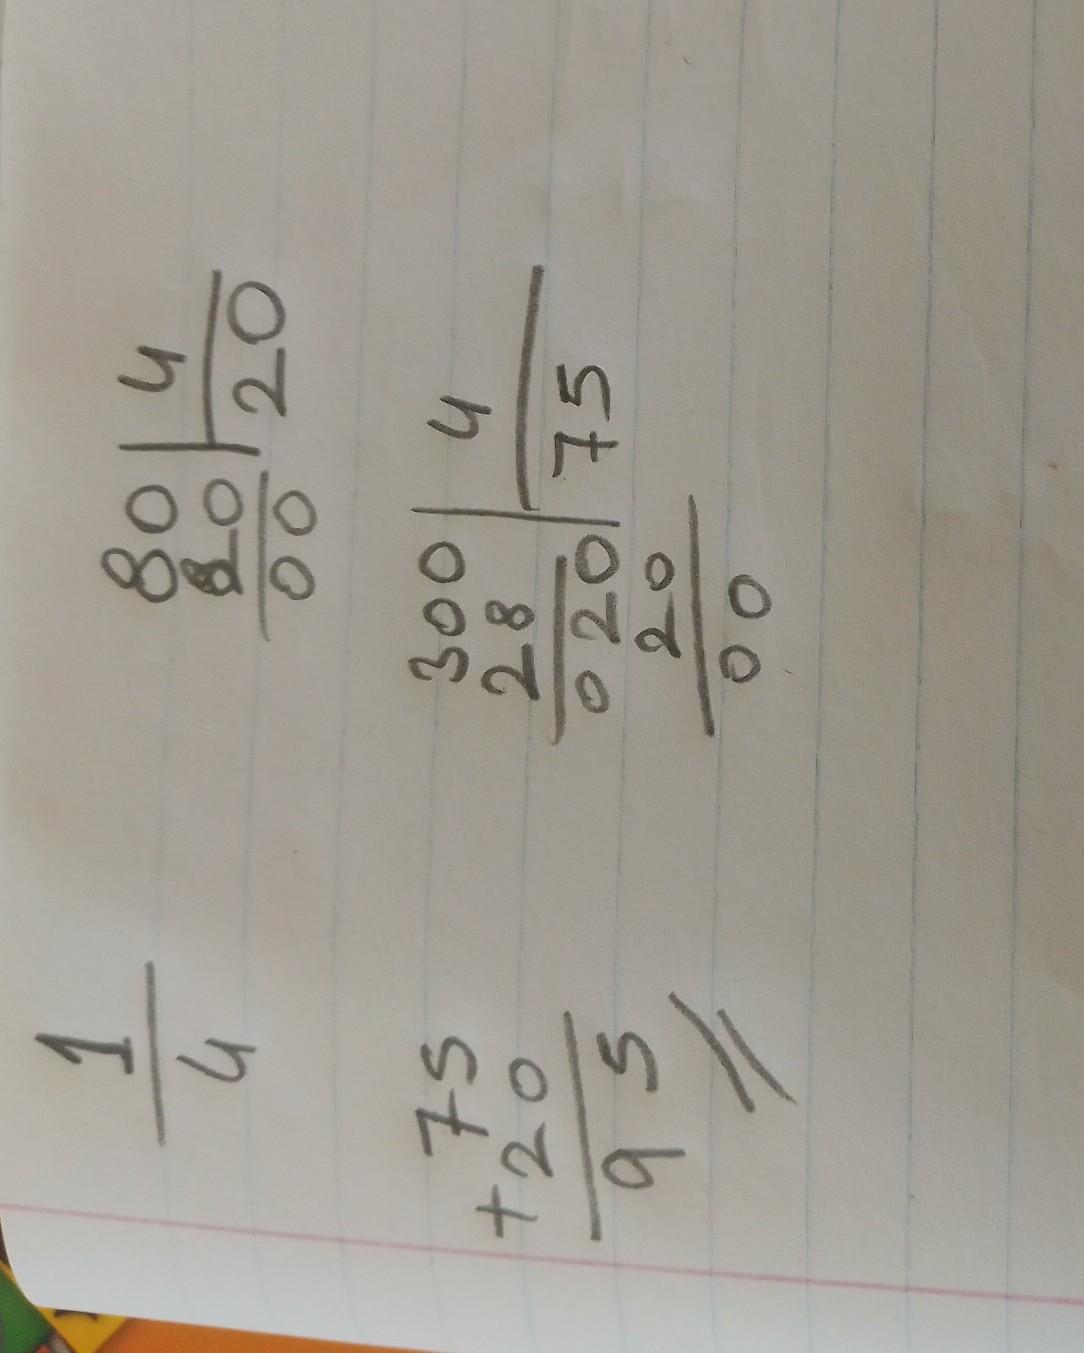 1
4
80 4
80 20
00
75
+20
95
300 4
28 75
020
20
00